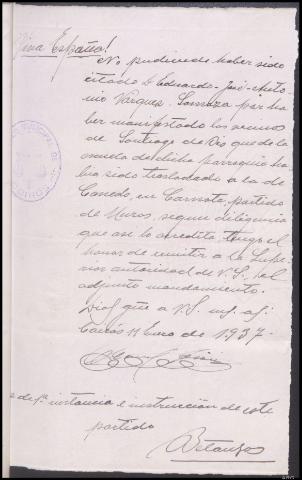 ¡Viva España!
No pudiendo haber sido
citado D. Eduardo-José-Anto
nio Varques Somoza por ha
ber manifestado los vecinos
de Santiago de Ois que de la
escuela de dicha parroquia ha
bia sido trasladado a la de
Canedo, en Carnota, partido
de Muros, segun diligencia
que asi lo acredita, tengo el
honor de remitir a la Supe
rior autoridad de V.S. el
adjunto mandamiento.
Dios gue a V.S. m. a.
11 Enero de 1937.
de 1ª instancia e instrucción de este
partido
Betanzos